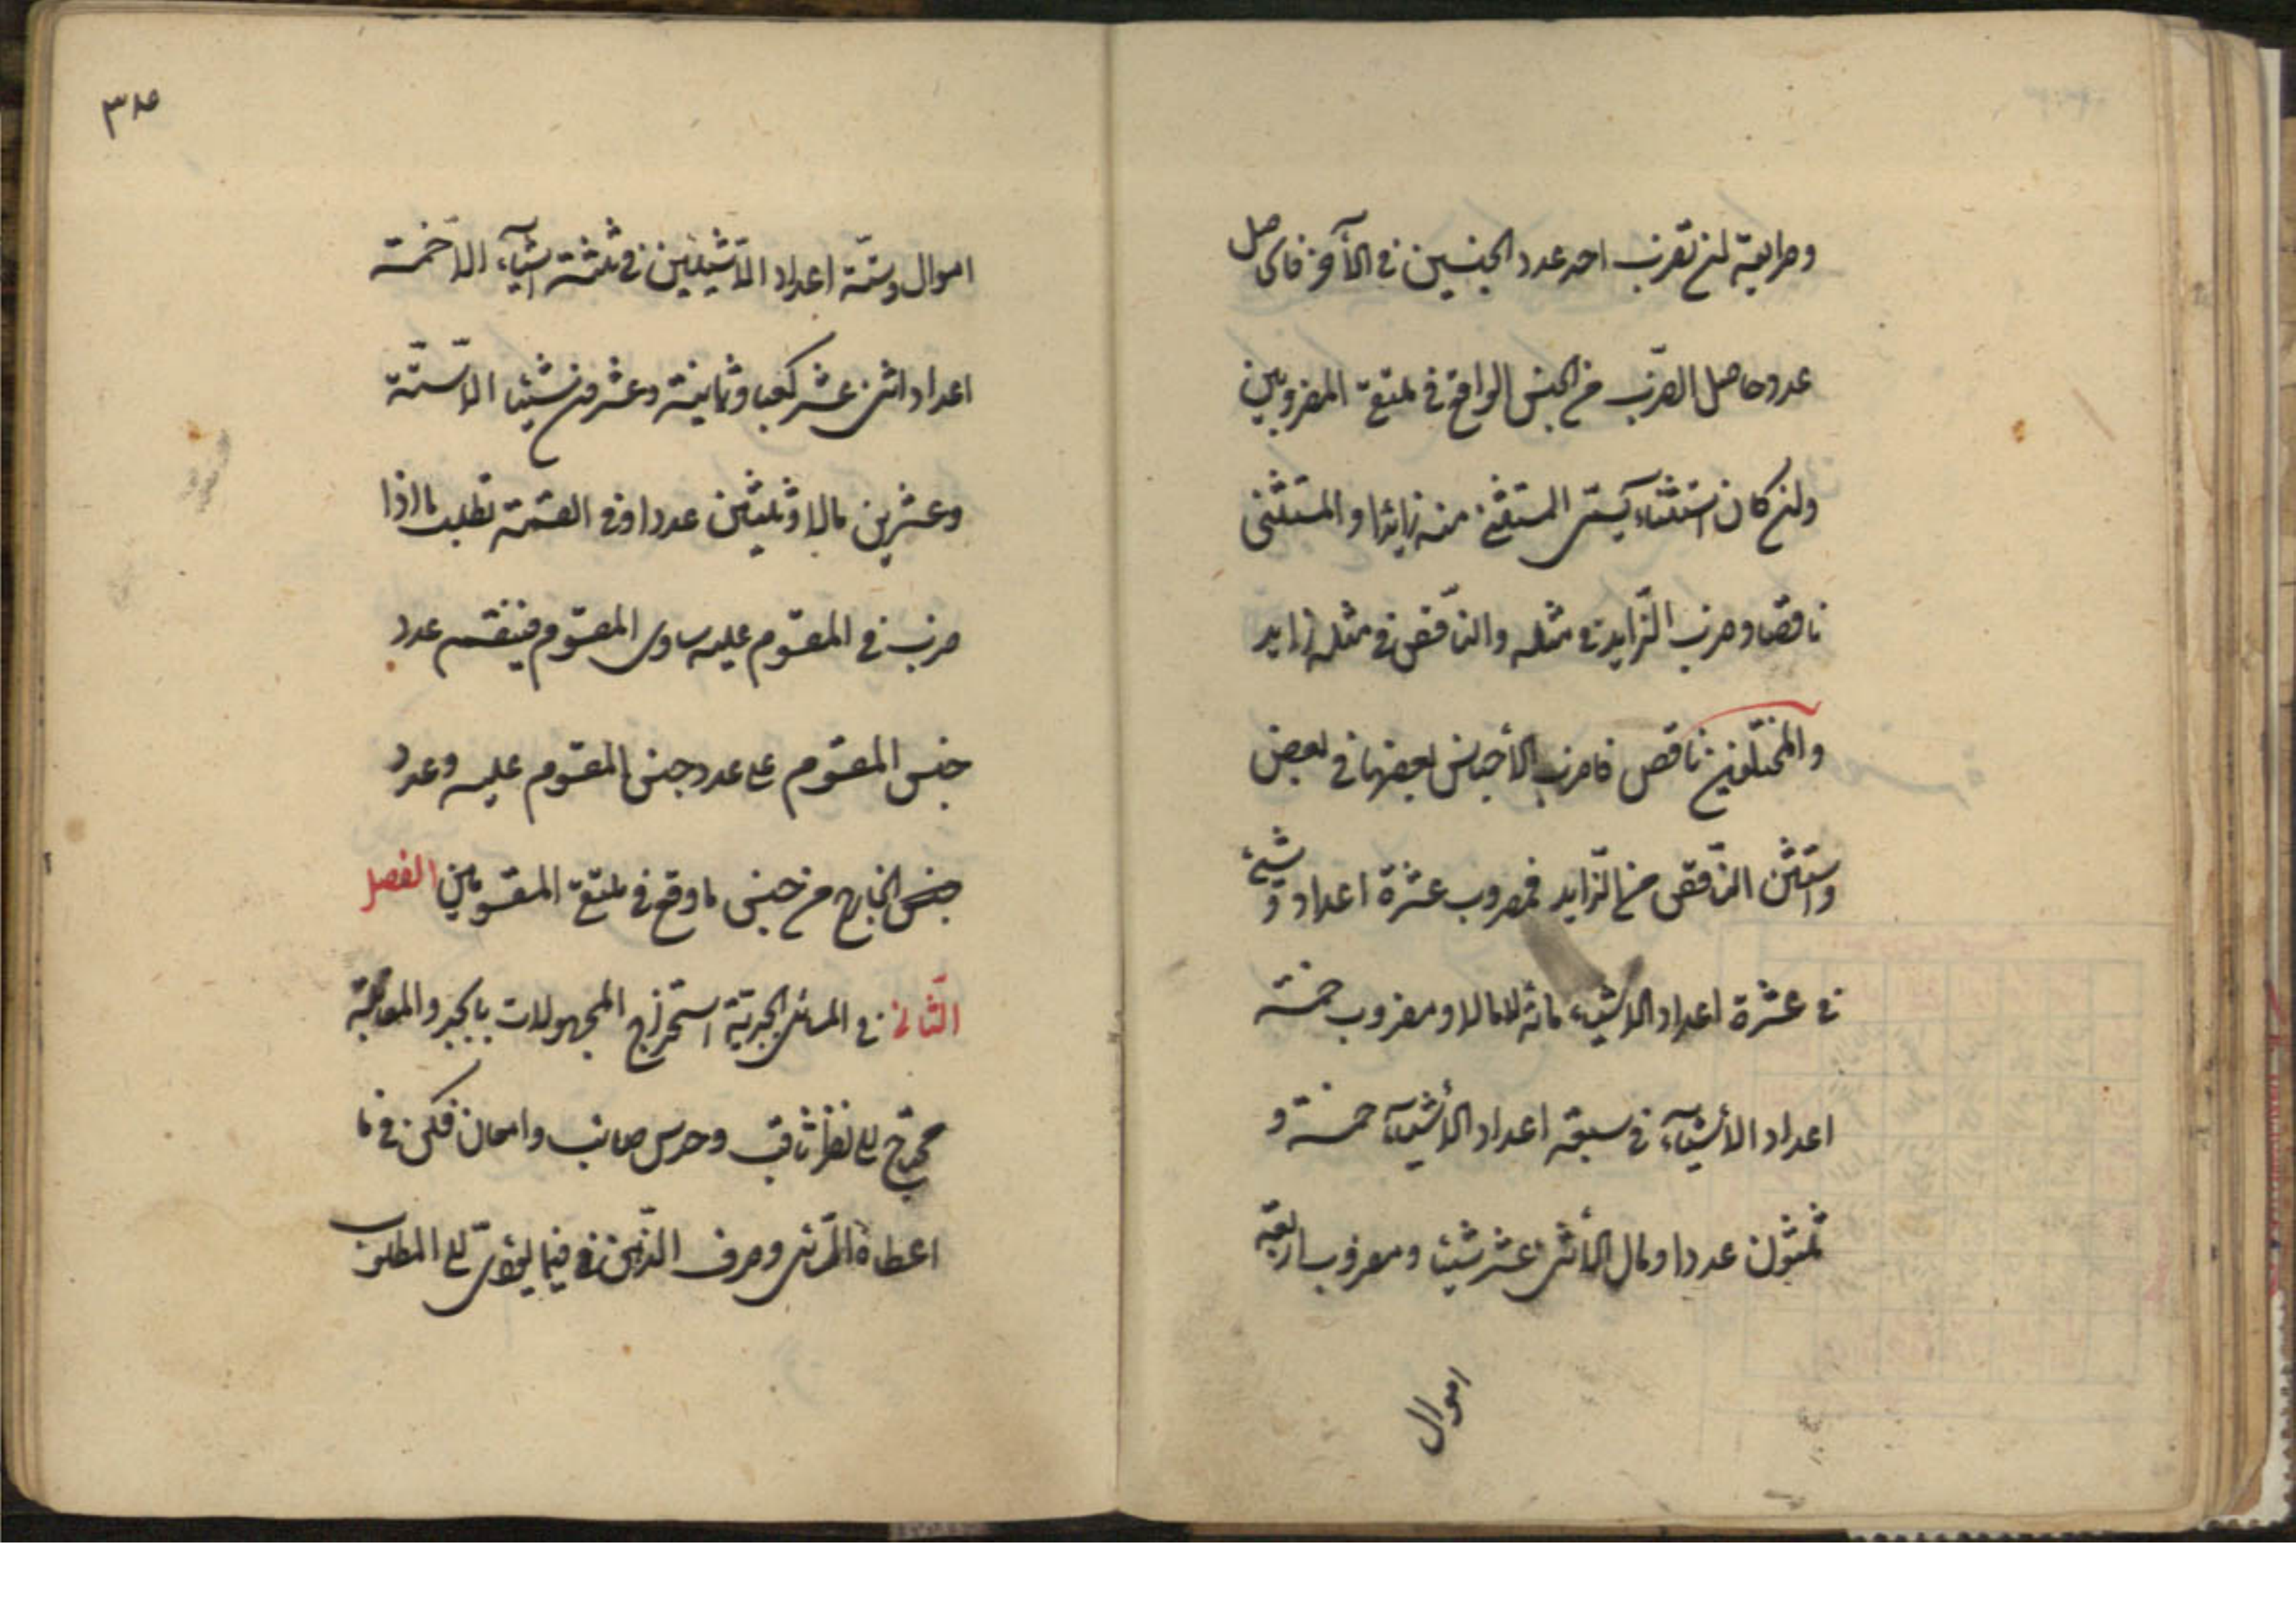 وطريقة ان تضرب احد عدد الجنسين في الآخر فالحاصل
عدد حاصل الضرب من الجنس الواقع في ملتقى المضروبين
وان كان استثناء يسمى المستثنى منه زائدا والمستثنى
ناقصا وضرب الزايد في مثله والناقص في مثله زايد
والمختلفين ناقص فاضرب الأجناس بعضها في بعض
واستثن الناقص من الزايد فمضروب عشرة اعداد وشيء
في عشرة اعداد الا شيء مائة الا مالا ومضروب خمسة
اعداد الأشيآء في سبعة اعداد الأشيآء خمسة و
ثلثون عددا ومال الا اثنى عشر شيئا ومضروب اربعة
اموال
٣٨
اموال وستة اعداد الا شيئين في ثلثة اشيآء الا خمسة
اعداد اثنى عشر كعبا وثمانية وعشرون شيئا الا ستة
وعشرين مالا وثلثين عددا وفي القسمة تطلب ما اذا
ضرب في المقسوم عليه ساوى المقسوم فيقسم عدد
جنس المقسوم على عدد جنس المقسوم عليه وعدد
جنس الخارج من جنس ما وقع في ملتقى المقسومين الفصل
الثاني في المسائل الجبرية استخراج المجهولات بالجبر والمقابلة
يحتاج الى نظر ثاقب وحدس صائب وامعان فكر في ما
اعطاه السائل وصرف الذهن في فيما يؤدى الى المطلوب